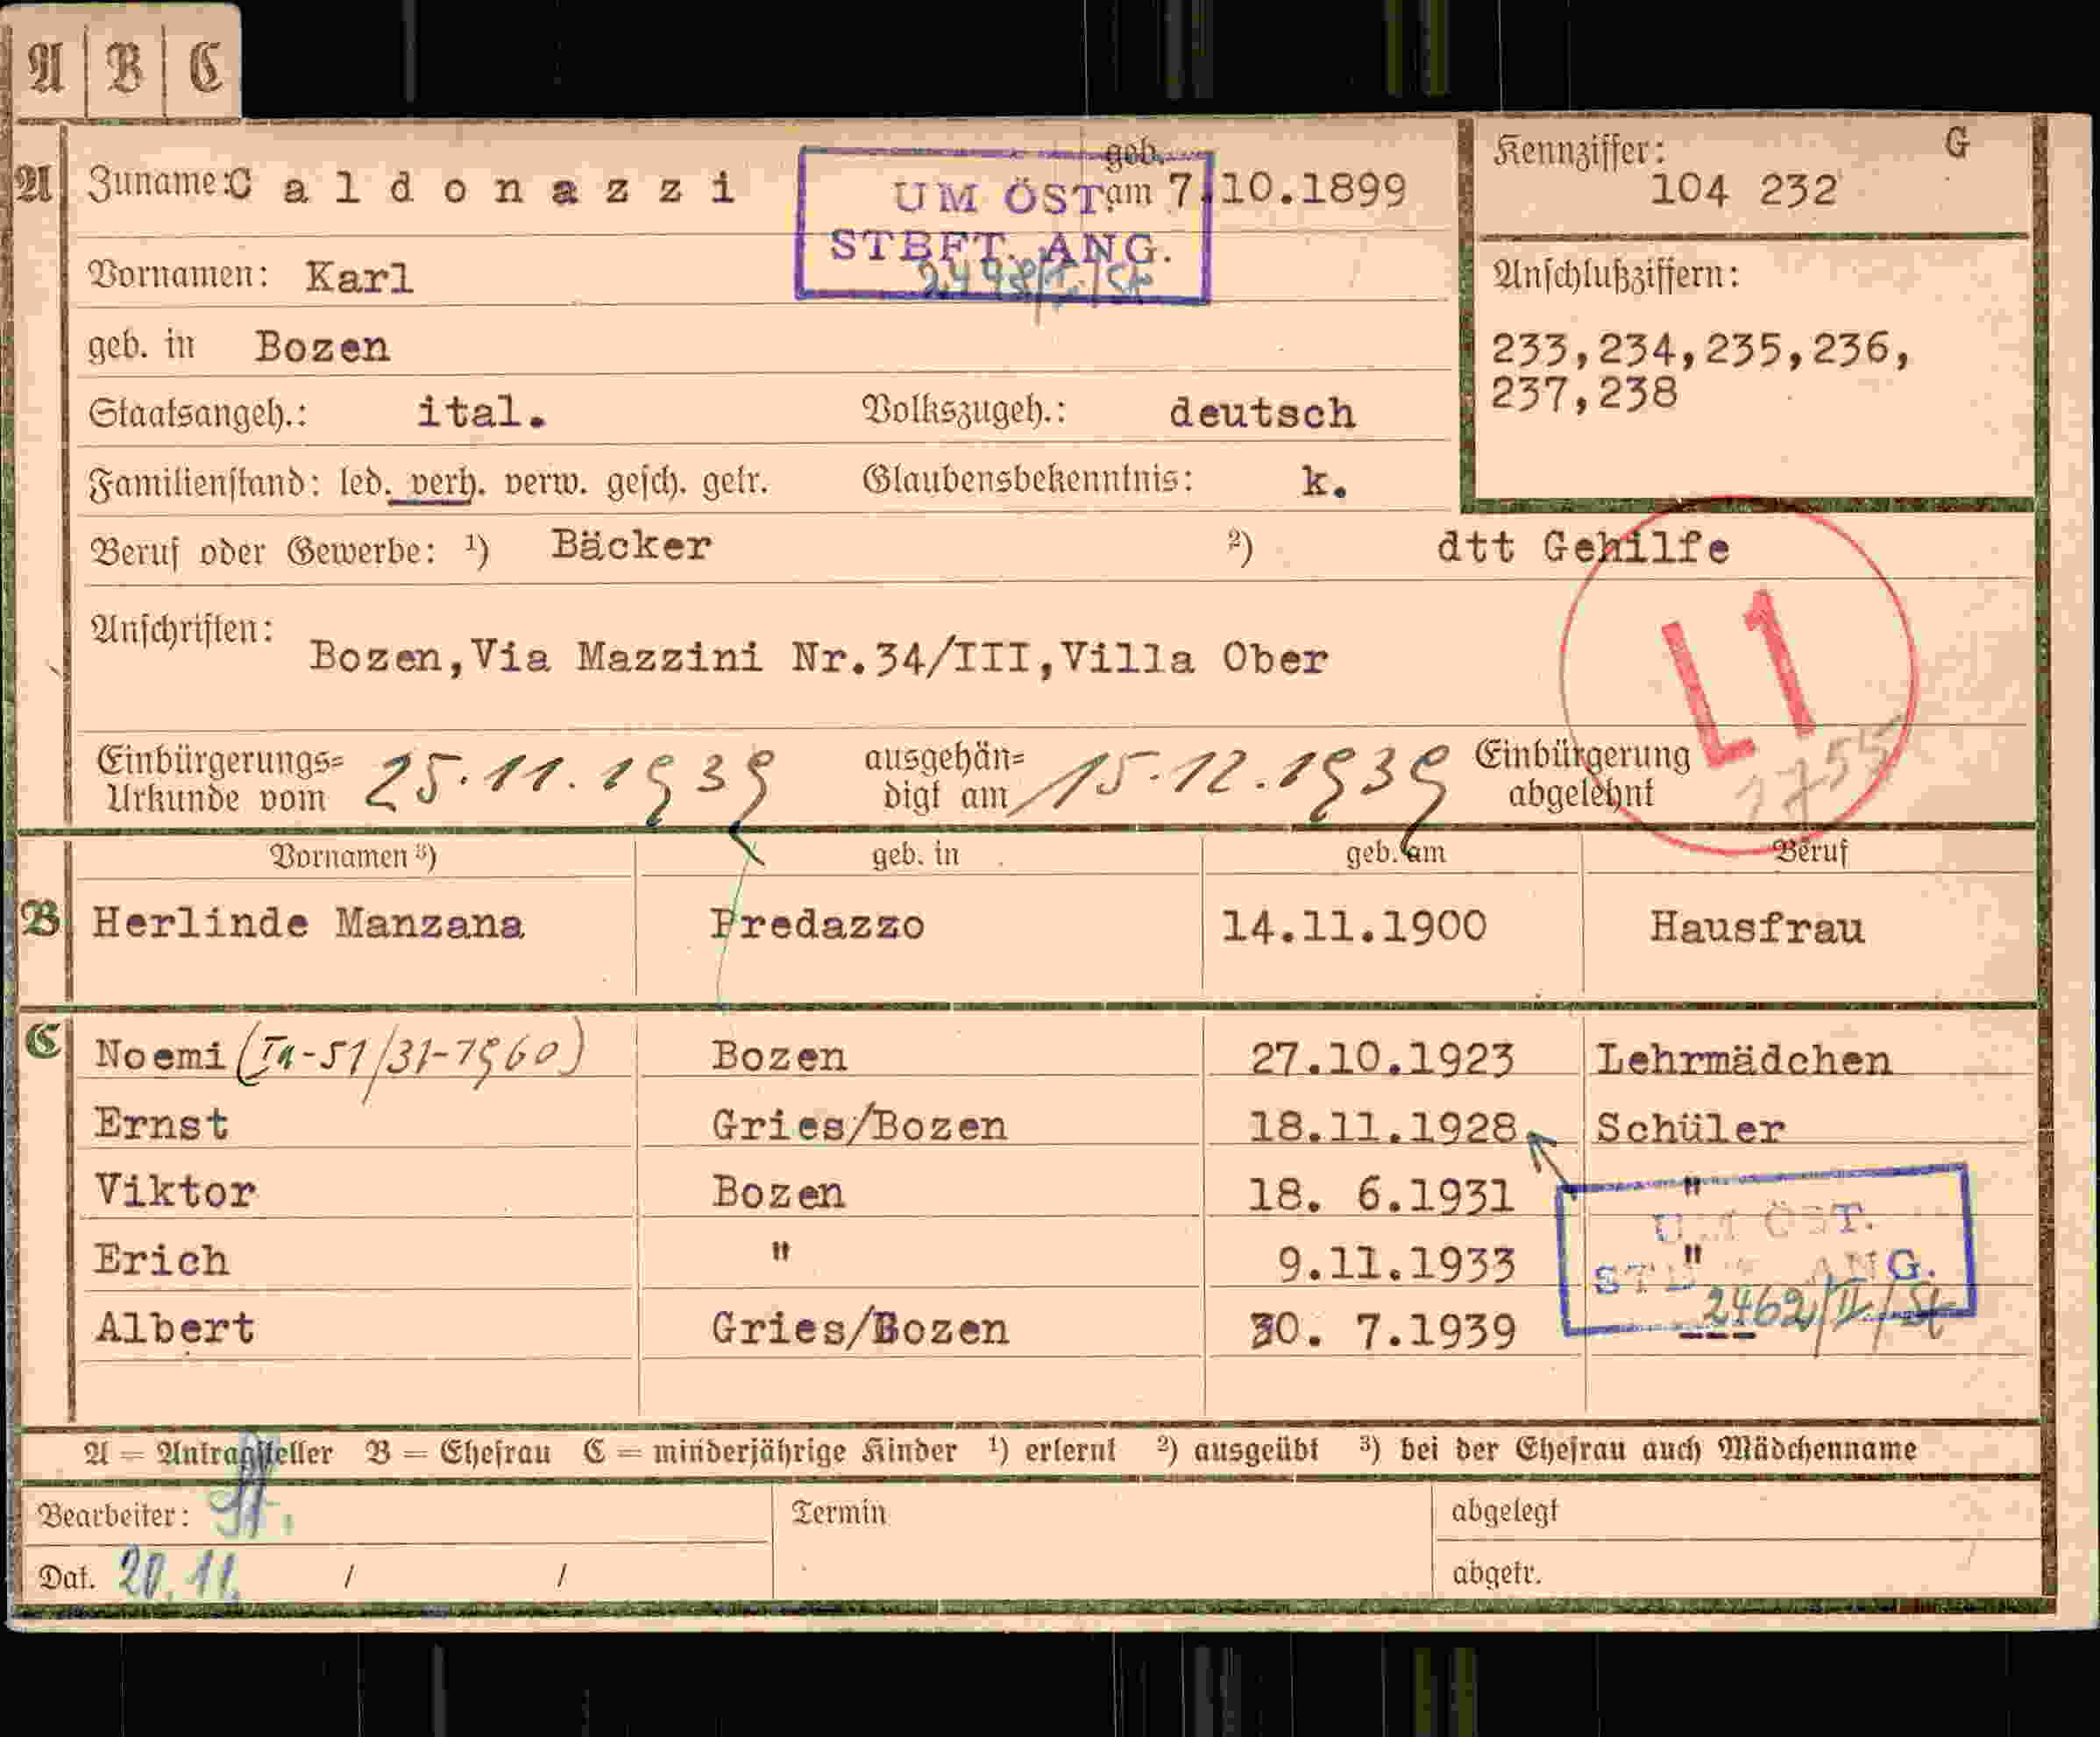 A B C
A Zuname: Caldonazzi geb. am 7.10.1899
UM ÖST.
STBFT. ANG.
Kennziffer: G
104 232
Vornamen: Karl
Anschlußziffern:
233,234,235,236,
237,238
geb. in Bozen
Staatsangeh.: ital. Volkszugeh.: deutsch
Familienstand: led. verh. verw. gesch. getr. Glaubensbekenntnis: k.
Beruf oder Gewerbe: ¹) Bäcker ²) dtt Gehilfe
Anschriften: Bozen,Via Mazzini Nr.34/III,Villa Ober
L1
1755
Einbürgerungs=
Urkunde vom 25.11.1939 ausgehän=
digt am 15.12.1939 Einbürgerung
abgelehnt
Vornamen ³) geb. in geb. am Beruf
B Herlinde Manzana Predazzo 14.11.1900 Hausfrau
C Noemi (Ia-51/31-1960) Bozen 27.10.1923 Lehrmädchen
Ernst Gries/Bozen 18.11.1928 Schüler
Viktor Bozen 18. 6.1931 "
Erich " 9.11.1933 "
Albert Gries/Bozen 30. 7.1939 ---
UM ÖST.
STBFT. ANG.
2462/II/St
A = Antragsteller B = Ehefrau C = minderjährige Kinder ¹) erlernt ²) ausgeübt ³) bei der Ehefrau auch Mädchenname
Bearbeiter: Termin abgelegt
Dat. 20.11. / / abgetr.